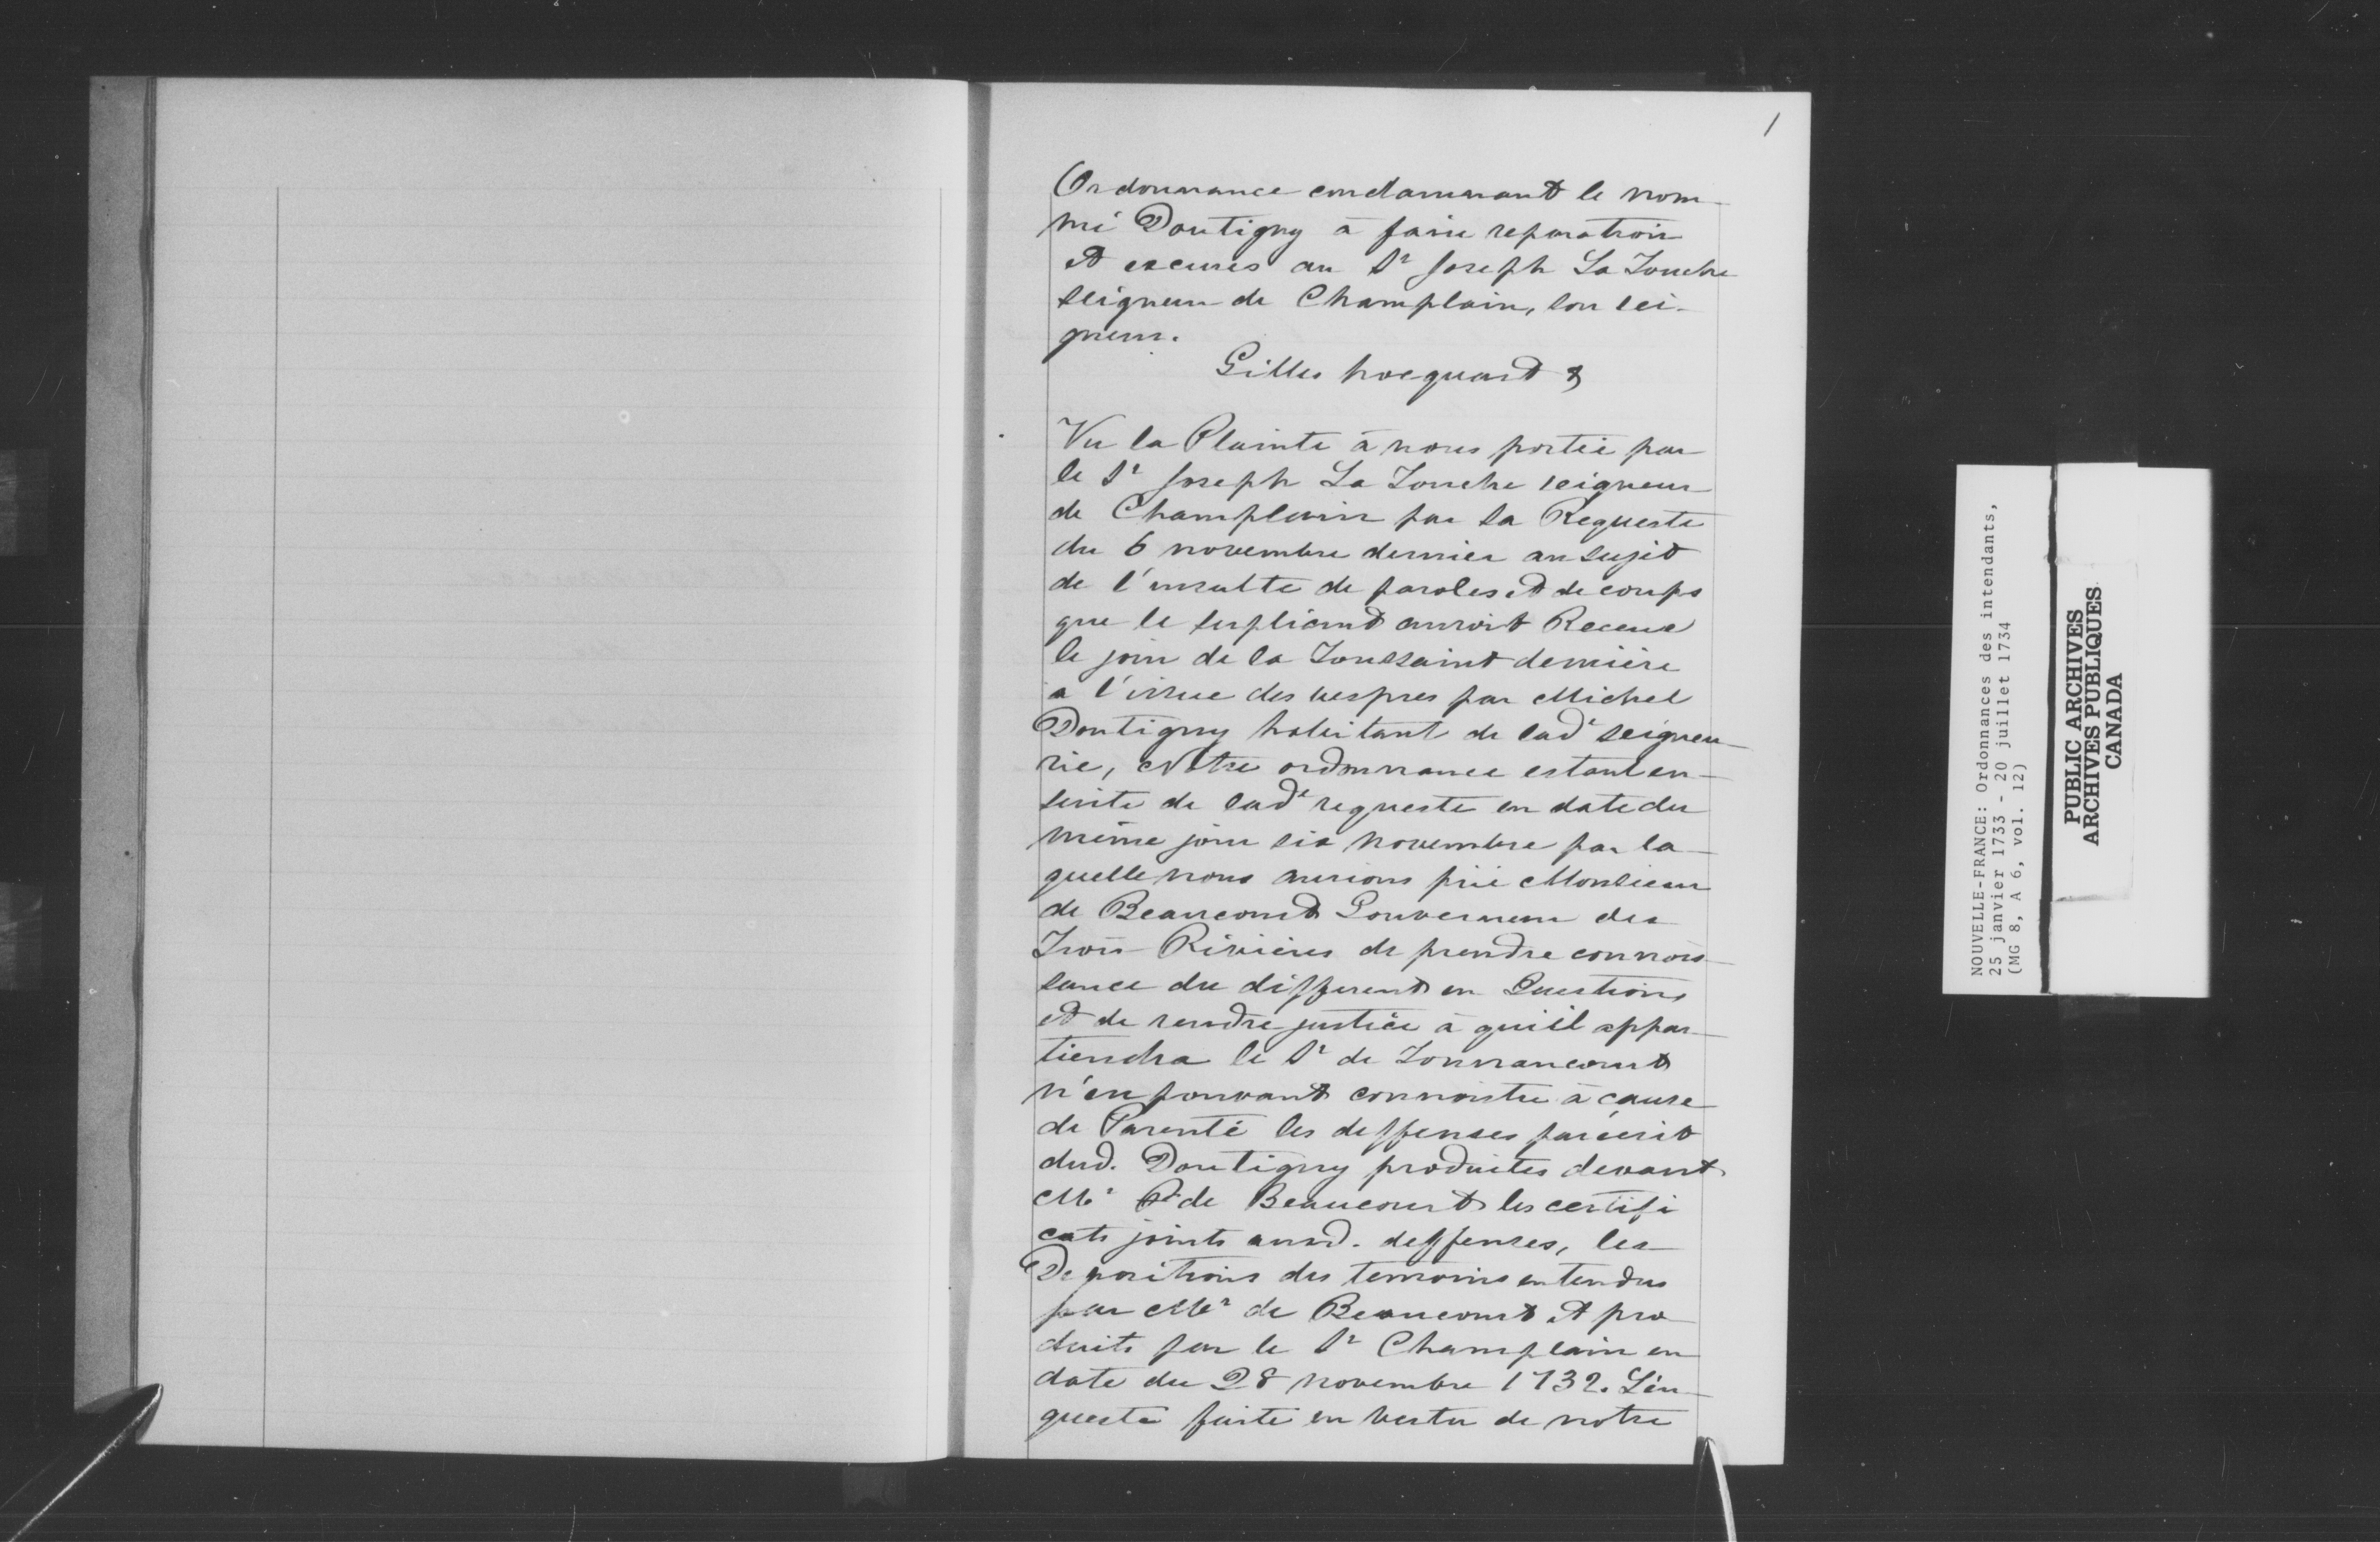 1
Ordonnance condamnant le nom-
mé Doutigny à faire reparation
et excuses au Sr Joseph La Touche
seigneur de Champlain, son sei-
gneur.
Gilles hocquart &
Vu la Plainte à nous portée par
le Sr Joseph La Touche seigneur
de Champlain par sa Requeste
du 6 novembre dernier au sujet
de l'insulte de paroles et de coups
que le supliant auroit Receue
le jour de la Toussaint dernière
a l'issue des vespres par Michel
Doutigny habitant de lade seigneu-
rie, Notre ordonnance estant en-
suite de lade requeste en date du
même jour six novembre par la-
quelle nous aurions prié Monsieur
de Beaucourt Gouverneur des
Trois-Rivières de prendre connois-
sance du different en Question
et de rendre justice à qui il appar-
tiendra le Sr de Tonnancourt
n'en pouvant connoistre à cause
de Parenté les deffenses par écrit
dud. Doutigny produites devant
Mr de Beaucourt les certifi
cats joints ausd. deffenses, les
Depositions des temoins entendus
par Mr de Beaucourt et pro
duits par le Sr Champlain en
date du 28 novembre 1732. L'en-
queste faite en vertu de notre
NOUVELLE-FRANCE: Ordonnances des intendants,
25 janvier 1733 - 20 juillet 1734
(MG 8, A 6, vol. 12)
PUBLIC ARCHIVES
ARCHIVES PUBLIQUES
CANADA